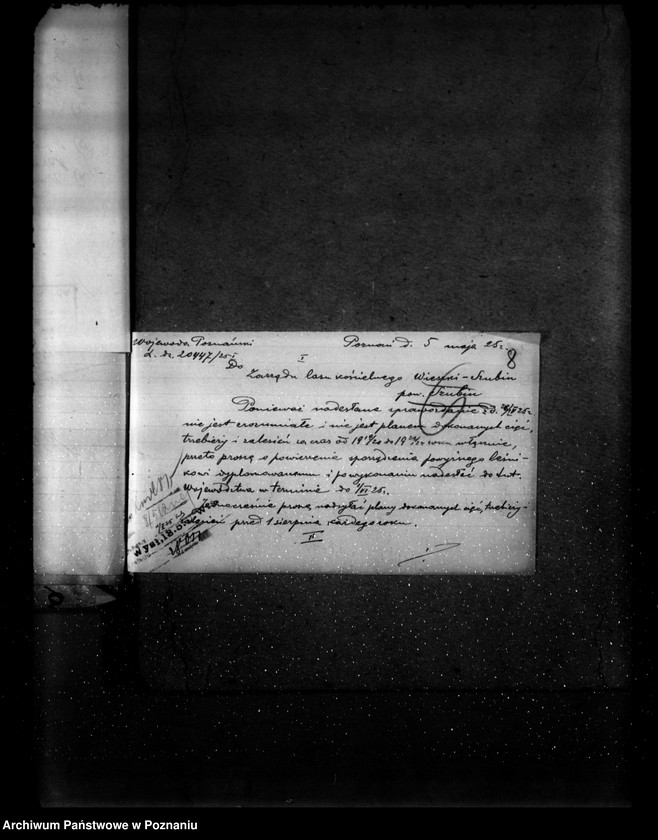 Wojewoda Poznański
Poznań d. 5 maja 25 r.
8
L. dz. 20447/25 I
I
Do
Zarządu lasu kościelnego Wieszki-Szubin
pow. Szubin
Ponieważ nadesłane sprawozdanie z d.
nie jest zrozumiałe i nie jest planem dokonanych cięć,
trzebieży i zalesień za czas od do
przeto proszę o powierzenie sporządzenia powyższego leśni-
kowi dyplomowanemu i po wykonaniu nadesłać do tut.
Województwa w terminie do 1/VI 25 r.
Jednocześnie proszę nadsyłać plany dokonanych cięć, trzebieży
zalesień przed 1 sierpnia każdego roku.
II
Wysł. 18.5.
Archiwum Państwowe w Poznaniu